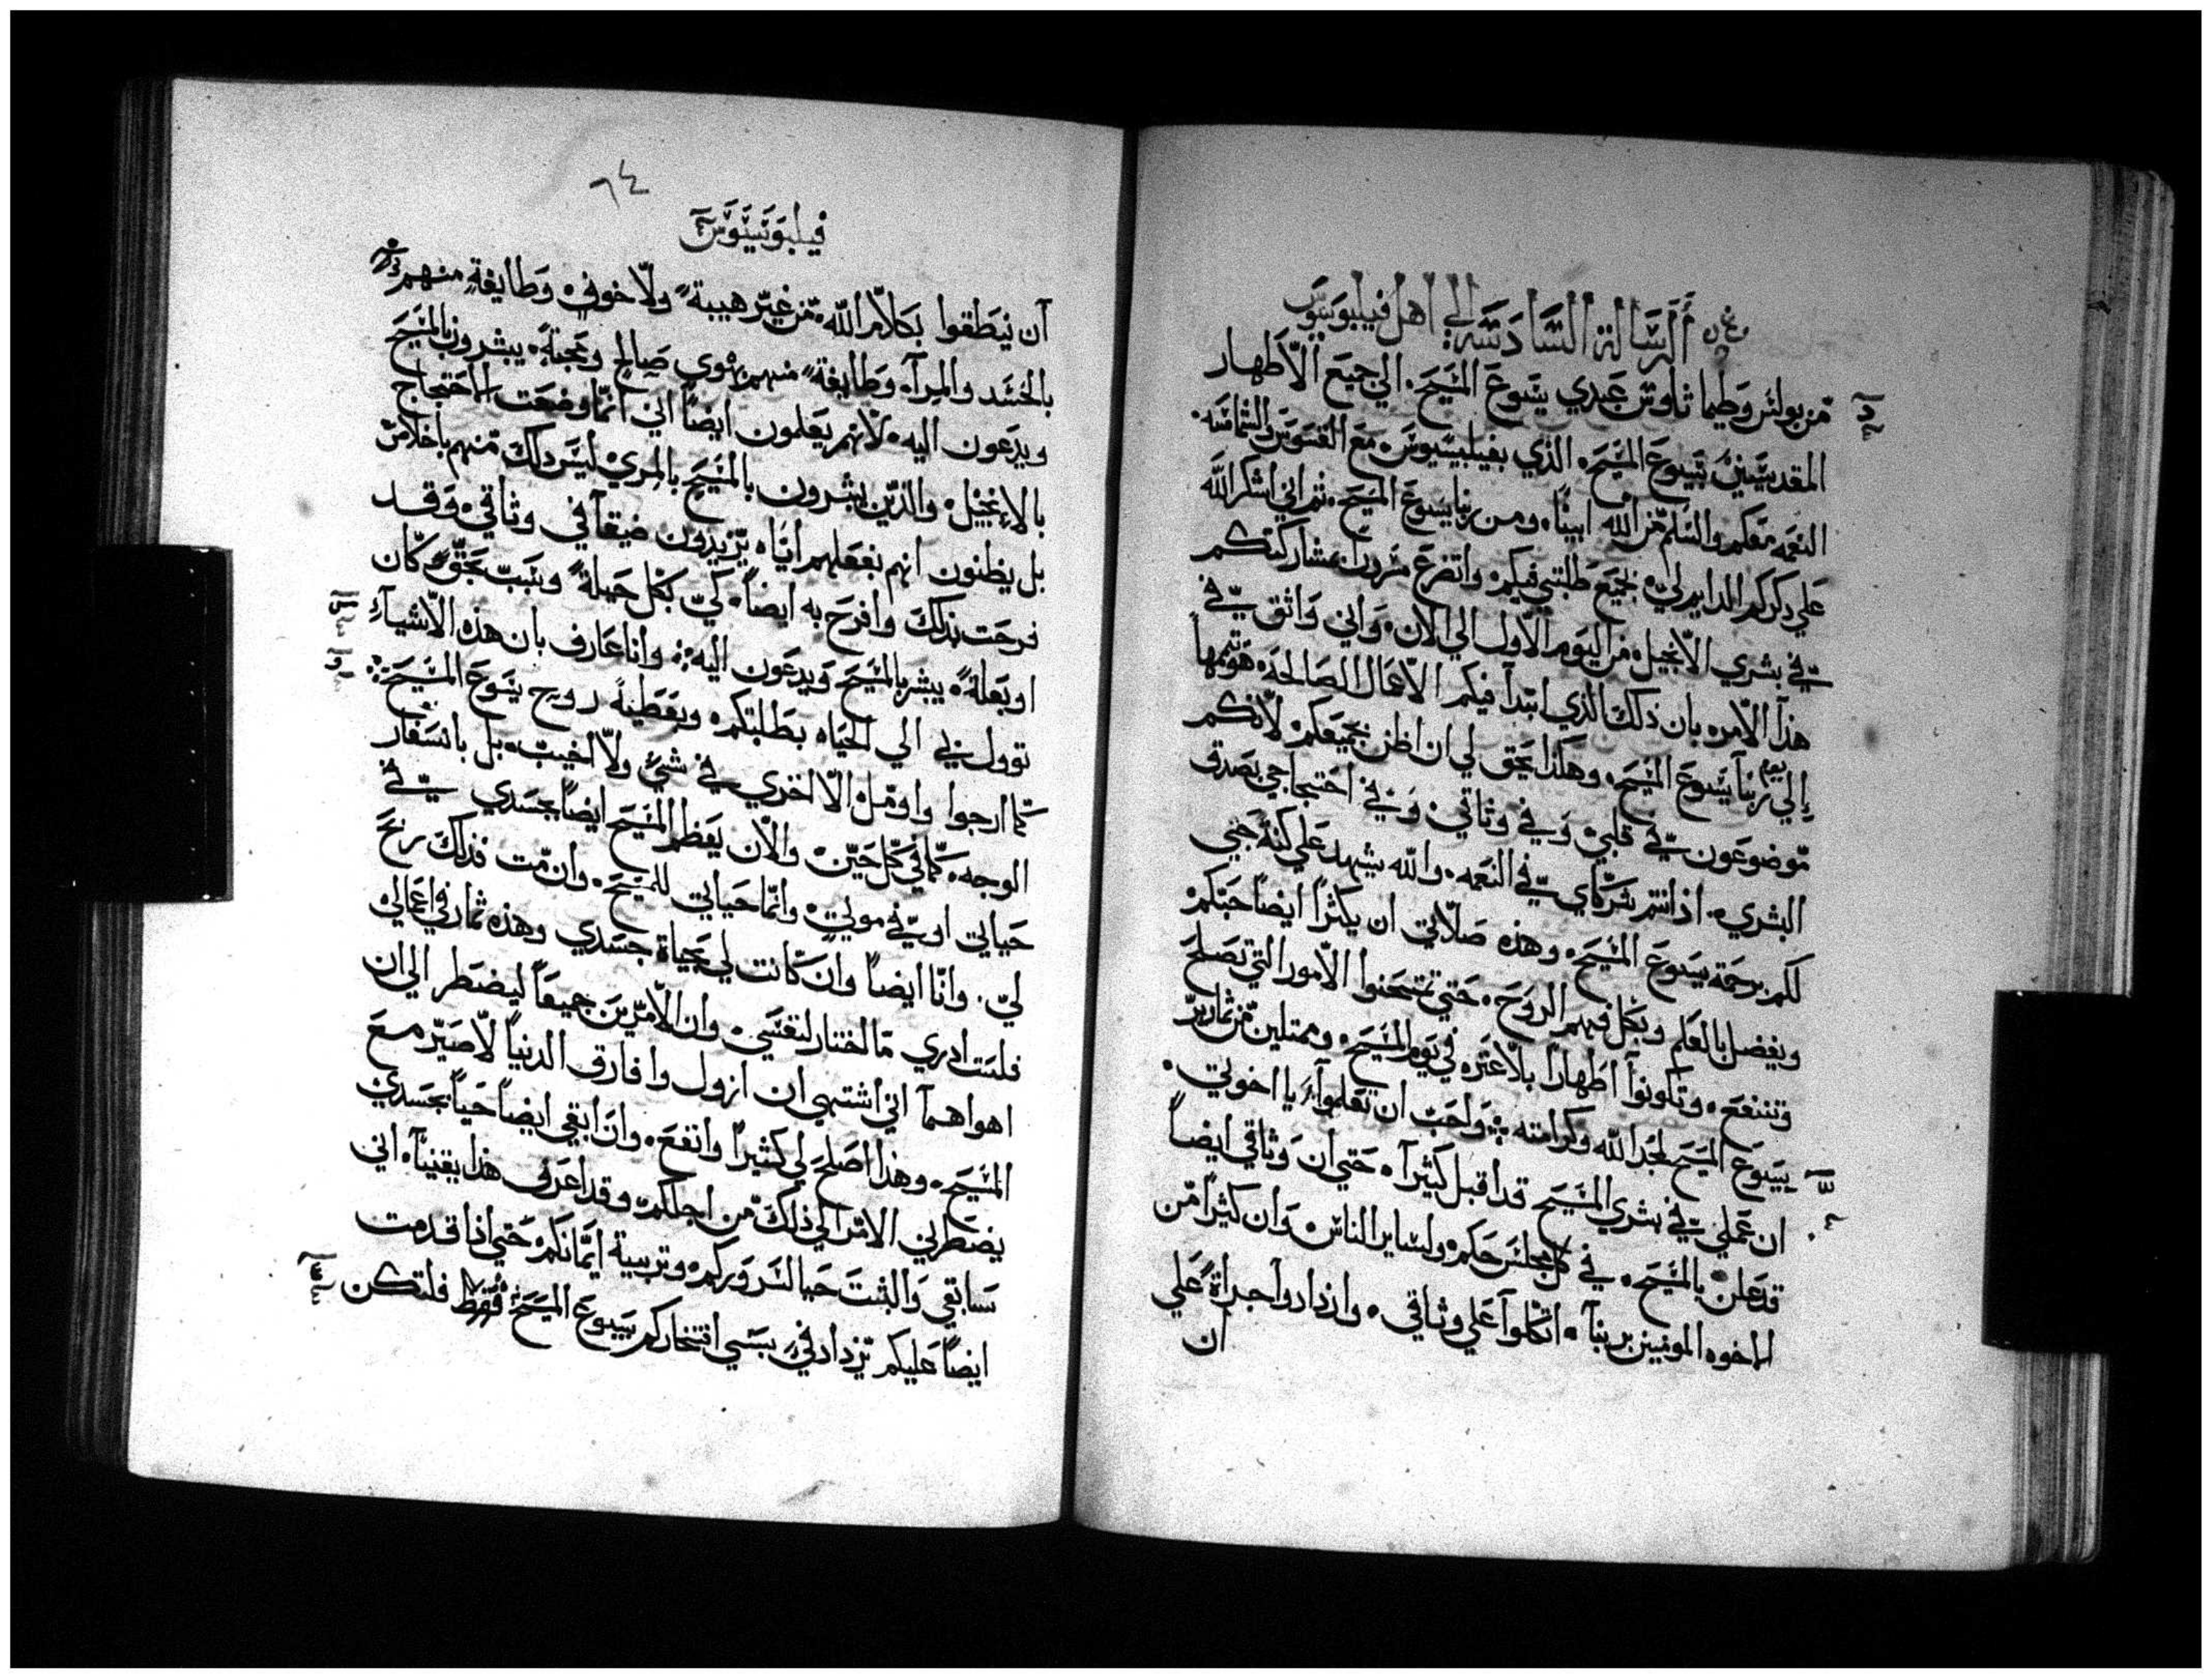 الرسالة السادسه الي اهل فيلبوسيوس
من بولس وطيماثاوس عبدي يسوع المسيح. الي جميع الاطهار
المقدسين بيسوع المسيح. الذي بفيلبسيوس مع القسوس والشمامسه.
النعمه معكم والسلم من الله ابينا. ومن ربنا يسوع المسيح. ثم اني اشكر الله
علي ذكركم الدايم لي. بجميع طلبتي فيكم. واتضرع مسرورا بمشاركتكم
في بشري الانجيل. من اليوم الاول الي الان. واني واثق في
هذا الامر. بان ذلك الذي ابتدا فيكم الاعمال الصالحه. هو يتمها
الي يوم ربنا يسوع المسيح. وهكذا يحق لي ان اظن بجميعكم. لانكم
موضوعون في قلبي. وفي وثاقي. وفي احتجاجي بصدق
البشري. اذ انتم شركاي في النعمه. والله يشهد علي كنة حبي
لكم برحمة يسوع المسيح. وهذه صلاتي ان يكثرا ايضا حبكم
ويفضل بالعلم وبكل فهم الروح. حتي تمتحنوا الامور التي تصلح
وتنفع. وتكونوا اطهارا بلا عثره في يوم المسيح. وممتلين من ثمار بر
يسوع المسيح لمجد الله وكرامته ❖ واحب ان تعلموا يا اخوتي.
ان عملي في بشري المسيح قد اقبل كثيرا. حتي ان وثاقي ايضا
قد علن بالمسيح. في كل مجلس حكم. ولساير الناس. وان كثيرا من
الاخوه المومنين بربنا. اتكلوا علي وثاقي. وازدادوا جراة علي
ان
٦٤
فيلبوسيوس
ان ينطقوا بكلام الله. من غير هيبة ولا خوف. وطايفة منهم
بالحسد والمرآء. وطايفة منهم بهوي صالح ومحبة. يبشرون بالمسيح
ويدعون اليه. لانهم يعلمون ايضا اني انما وضعت للاحتجاج
بالانجيل. والذين يبشرون بالمسيح بالمري. ليس ذلك منهم باخلاص
بل يظنون انهم بفعلهم اياه يزيدون ضيقا في وثاقي. وقد
فرحت بذلك وافرح به ايضا. لي بكل حيلة وبسبب بحق كان
او بعلة. يبشر بالمسيح ويدعون اليه ❖ وانا عارف بان هذه الاشياء
توول بي الي الحياه بطلبتكم. وبعطية روح يسوع المسيح ❖
كما ارجوا واومل الا اخزي في شي ولا اخيب. بل باسفار
الوجه. كما في كل حين. والان يعظم المسيح ايضا بجسدي في
حياتي او في موتي. وانما حياتي للمسيح. وان مت فذلك ربح
لي. وانا ايضا وان كانت لي بحياة جسدي وهذه ثمار في اعمالي
فلست ادري ما اختار لنفسي. وان الامرين جميعا ليضطر الي ان
اهواهما اني اشتهي ان ازول وافارق الدنيا لاصير مع
المسيح. وهذا اصلح لي كثيرا وانفع. وان ابقي ايضا حيا بجسدي
يضطرني الامر الي ذلك من اجلكم. وقد اعرف هذا يقينا. اني
سابقي والبث حيا لسروركم. وتربية ايمانكم. حتي اذا قدمت
ايضا عليكم يزداد في بسببي افتخاركم بيسوع المسيح فقط فلتكن